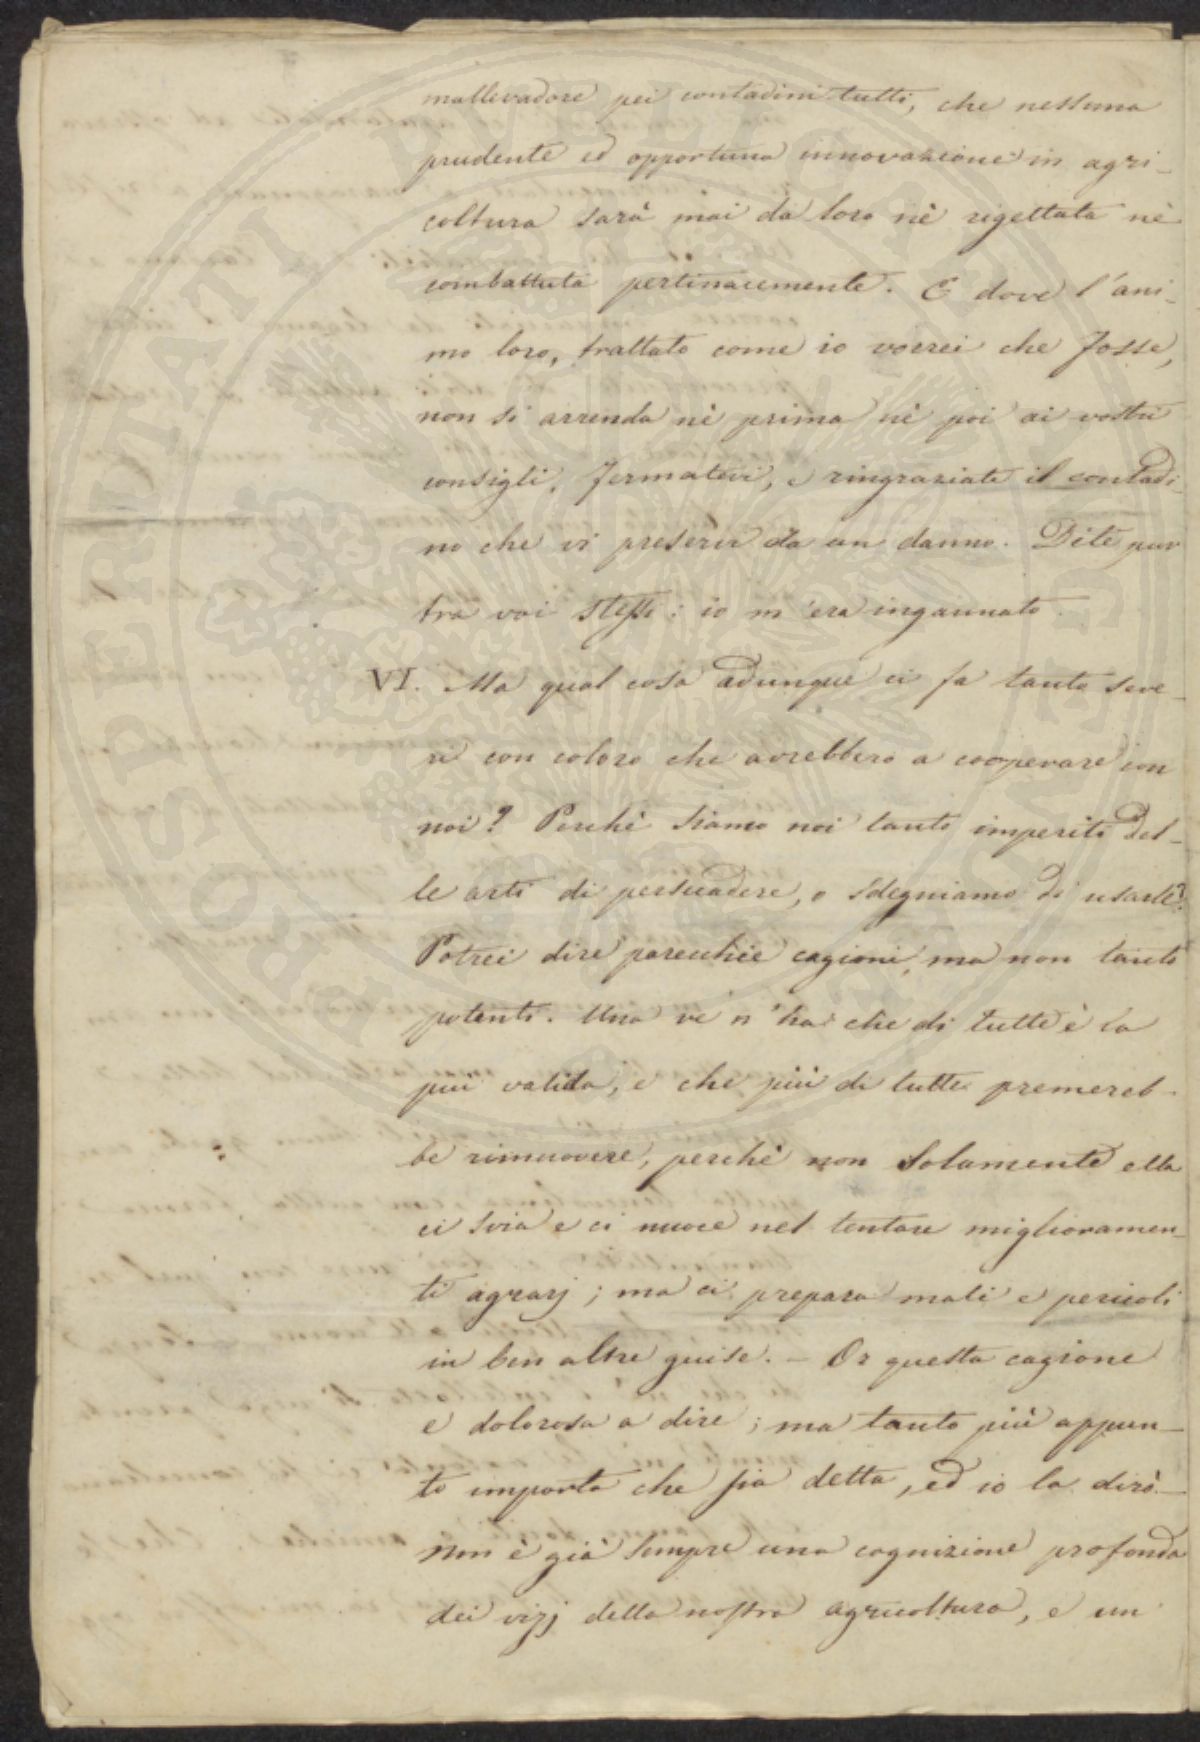 mallevadore pei contadini tutti, che nessuna
prudente ed opportuna innovazione in agri-
coltura sarà mai da loro nè rigettata nè
combattuta pertinacemente. E dove l'ani-
mo loro, trattato come io vorrei che fosse,
non si arrenda nè prima nè poi ai vostri
consigli, fermatevi, e ringraziate il contadi-
no che vi preservò da un danno. Dite pur
tra voi stessi: io m'era ingannato.
VI. Ma qual cosa adunque ci fa tanto seve-
ri con coloro che avrebbero a cooperare con
noi? Perchè siamo noi tanto imperiti del-
le arti di persuadere, o sdegniamo di usarle?
Potrei dire parecchie cagioni, ma non tanto
potenti. Una ve n'ha che di tutte è la
più valida, e che più di tutte premereb-
be rimuovere, perchè non solamente ella
ci svia e ci nuoce nel tentare miglioramen-
ti agrarj; ma ci prepara mali e pericoli
in ben altre guise. – Or questa cagione
e dolorosa a dire; ma tanto più appun-
to importa che sia detta, ed io la dirò –
Non è già sempre una cognizione profonda
dei vizj della nostra agricoltura, e un
PROSPERITATI PUBLICAE AUGENDAE